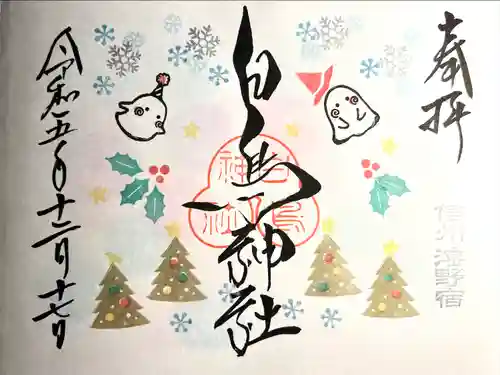 奉拝
信州 海野宿
白鳥神社
白鳥神社
令和五年十二月十七日